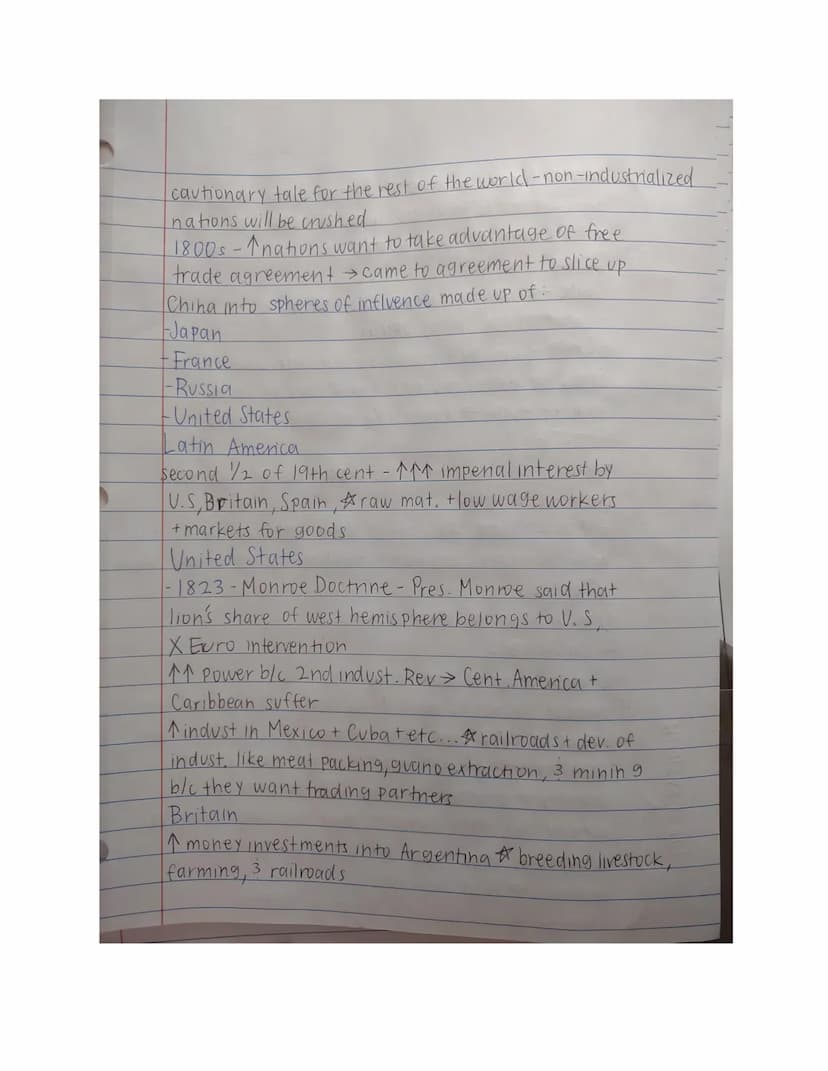 cautionary tale for the rest of the world - non-industrialized
nations will be crushed
1800s - ↑nations want to take advantage of free
trade agreement → came to agreement to slice up
China into spheres of influence made up of:
-Japan
-France
-Russia
-United States
Latin America
second 1/2 of 19th cent - ↑↑↑ imperial interest by
U.S, Britain, Spain, ☆ raw mat. + low wage workers
+ markets for goods
United States
- 1823 - Monroe Doctrine - Pres. Monroe said that
lion's share of west hemisphere belongs to U.S,
X Euro intervention
↑↑ power b/c 2nd indust. Rev → Cent. America +
Caribbean suffer
↑ indust in Mexico + Cuba + etc... ☆ railroads + dev. of
indust. like meat packing, guano extraction, & mining
b/c they want trading partners
Britain
↑ money investments into Argentina ☆ breeding livestock,
farming, & railroads